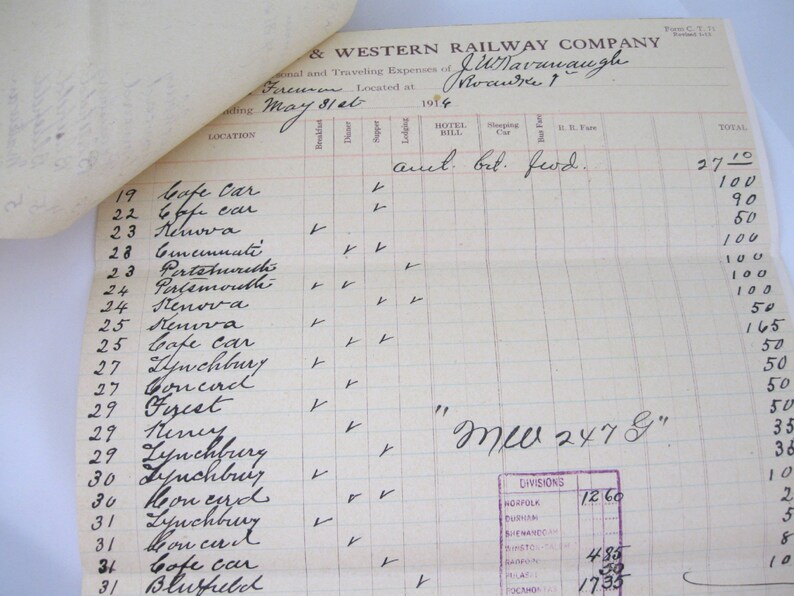 Form C. T. 71
Revised
& WESTERN RAILWAY COMPANY
sonal and Traveling Expenses of J. W. Kavanaugh
Foreman Located at Roanoke Va
nding May 31st 1916
LOCATION Breakfast Dinner Supper Lodging HOTEL BILL Sleeping Car Bus Fare R. R. Fare TOTAL
amt. bt. fwd. 27 10
19 Cafe Car ✓ 100
22 Cafe car ✓ 90
23 Kenova ✓ 50
23 Cincinnati ✓ ✓ 100
23 Portsmouth ✓ 100
24 Portsmouth ✓ ✓ 100
24 Kenova ✓ ✓ 100
25 Kenova ✓ 50
25 Cafe car ✓ ✓ 165
27 Lynchburg ✓ 50
27 Concord ✓ 50
29 Forest ✓ 50
29 ✓ 35
29 Lynchburg ✓
30 Lynchburg ✓
30 Concord ✓ ✓
31 Lynchburg ✓
31 Concord ✓
31 Cafe car ✓
31 Bluefield ✓
"MW 247 G"
DIVISIONS
NORFOLK 12 60
DURHAM
SHENANDOAH
WINSTON-SALEM
RADFORD 4 85
PULASKI 50
POCAHONTAS 17 35